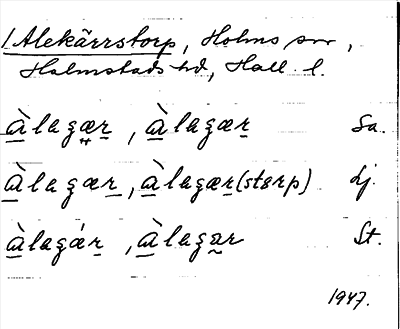 /Alekärrstorp, Holms sn,
Halmstads hd, Hall. l.
àlagær, àlagær Sa.
àlagær, àlagær(størp) Lj.
àlagár, àlagar St.
1947.